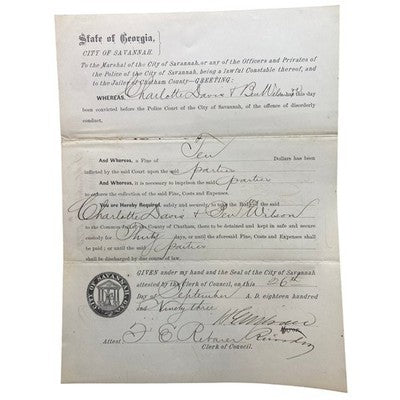 State of Georgia,
CITY OF SAVANNAH.
To the Marshal of the City of Savannah, or any of the Officers and Privates of
the Police of the City of Savannah, being a lawful Constable thereof, and
to the Jailer of Chatham County—GREETING:
WHEREAS, Charlotte Davis & Ben Wilson this day
been convicted before the Police Court of the City of Savannah, of the offence of disorderly
conduct.
And Whereas, a Fine of Ten Dollars has been
inflicted by the said Court upon the said parties
And Whereas, it is necessary to imprison the said parties
to enforce the collection of the said Fine, Costs and Expenses.
You are Hereby Required, safely and securely to the said
Charlotte Davis & Ben Wilson
to the Common Jail of the County of Chatham, there to be detained and kept in safe and secure
custody for Thirty days, or until the aforesaid Fine, Costs and Expenses shall
be paid; or until the said parties
shall be discharged by due course of law.
GIVEN under my hand and the Seal of the City of Savannah
attested by the Clerk of Council, on this 26th
Day of September A. D. eighteen hundred
and Ninety three
Attest F E Rebarer
Clerk of Council.
CITY OF SAVANNAH, GA.